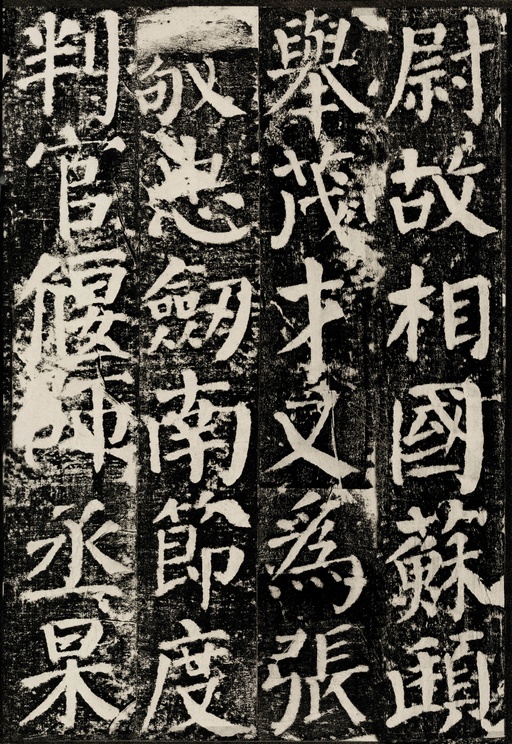 尉故相國蘇頲
舉茂才又爲張
敬忠劒南節度
判官偃師丞杲